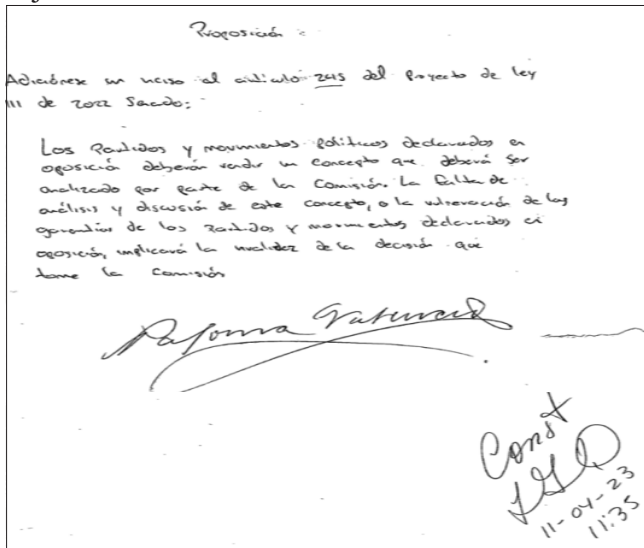 Proposición :
Adiciónese un inciso al artículo 245 del Proyecto de ley
111 de 2022 Senado:
Los Partidos y movimientos políticos declarados en
oposición deberán rendir un concepto que deberá ser
analizado por parte de la Comisión. La falta de
análisis y discusión de este concepto, o la vulneración de las
garantías de los Partidos y movimientos declarados en
oposición, implicará la invalidez de la decisión que
tome la Comisión
Paloma
Const
11-04-23
11:35